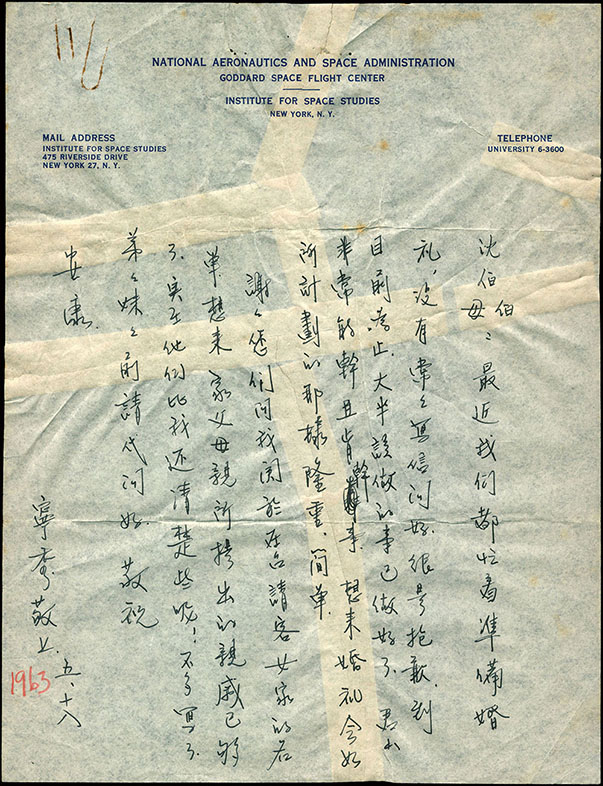 NATIONAL AERONAUTICS AND SPACE ADMINISTRATION
GODDARD SPACE FLIGHT CENTER
INSTITUTE FOR SPACE STUDIES
NEW YORK, N. Y.
MAIL ADDRESS
INSTITUTE FOR SPACE STUDIES
475 RIVERSIDE DRIVE
NEW YORK 27, N. Y.
TELEPHONE
UNIVERSITY 6-3600
沈伯伯母：最近我们都忙着準備婚
礼，没有常々写信问好，很是抱歉，到
目前為止，大半該做的事已做好了，君山
非常能幹且肯幹事，想来婚礼会如
所計劃的那樣隆重、简单.
謝々您们问我関於在台請客女家的名
单，想来家父母親所提出的親戚已够
了，实在他们比我还清楚些呢！不多写了.
弟々妹々前請代问好. 敬祝
安康.
寧 敬上. 五、十八
1963